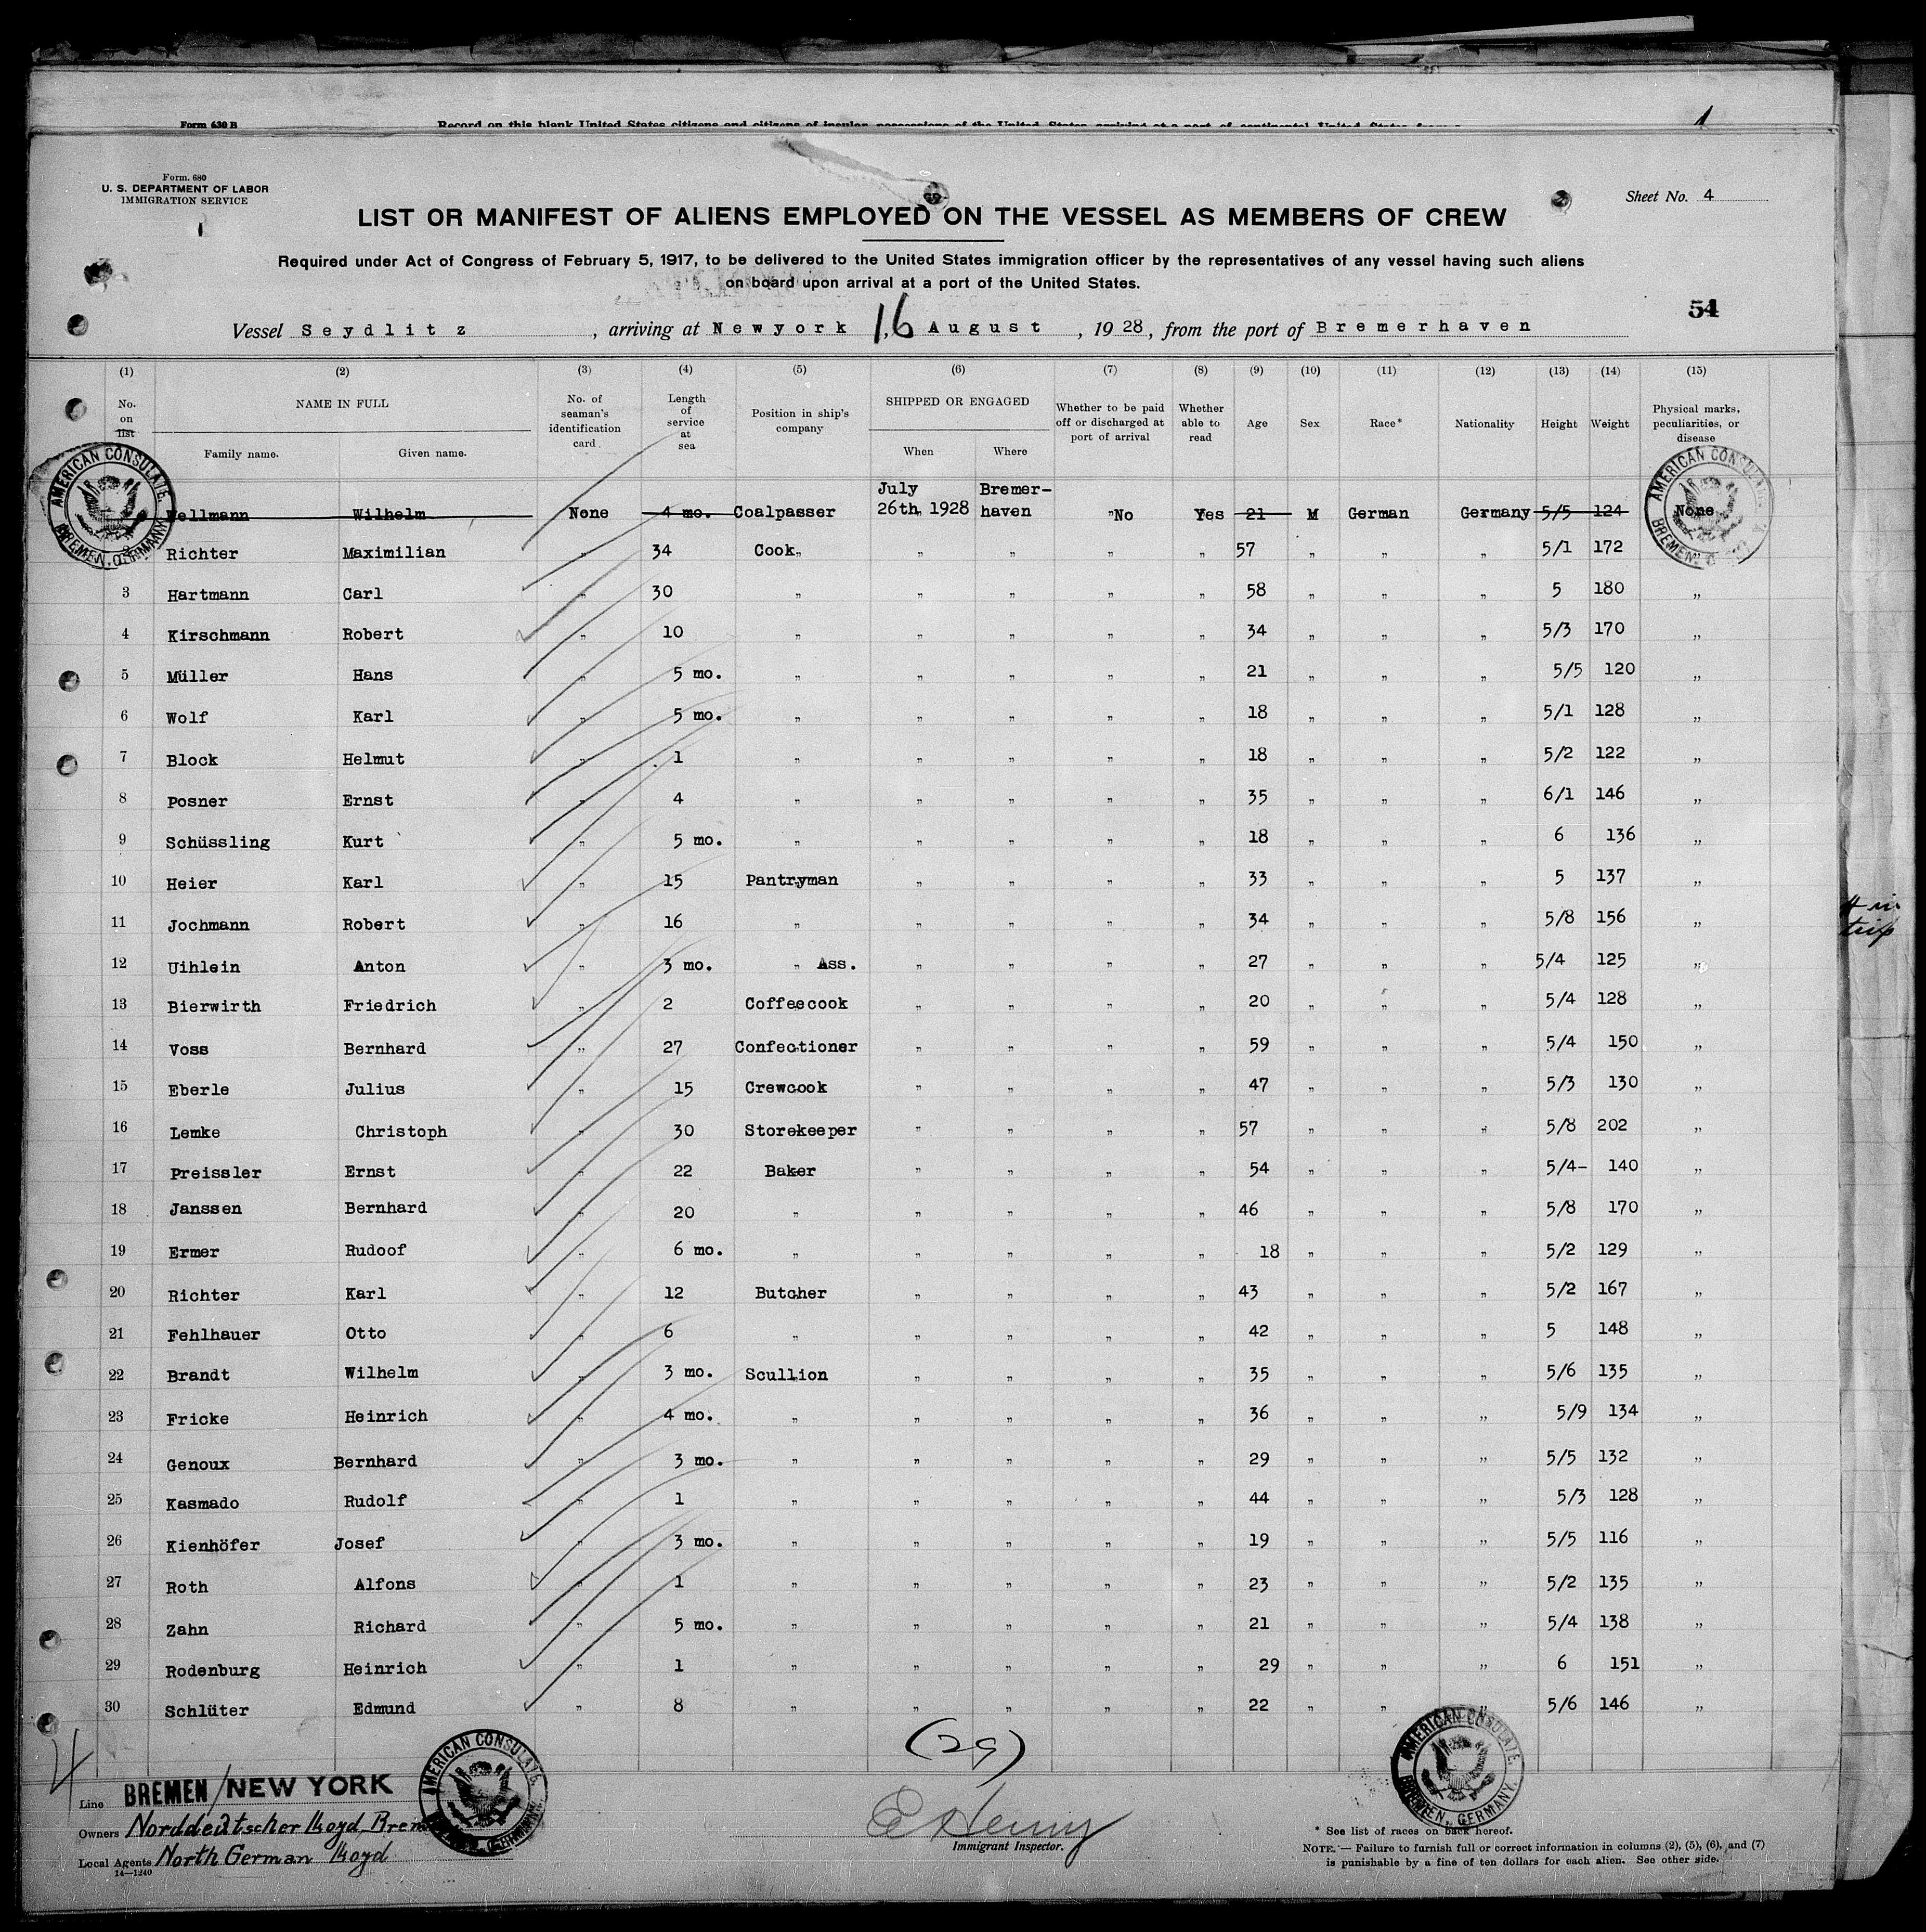 Form 630 B
Record on this blank United States citizens and citizens of insular possessions of the United States arriving at a port of continental United States from
1
Form. 680
U. S. DEPARTMENT OF LABOR
IMMIGRATION SERVICE
Sheet No. 4
LIST OR MANIFEST OF ALIENS EMPLOYED ON THE VESSEL AS MEMBERS OF CREW
Required under Act of Congress of February 5, 1917, to be delivered to the United States immigration officer by the representatives of any vessel having such aliens
on board upon arrival at a port of the United States.
54
Vessel Seydlitz, arriving at Newyork, 16 August, 1928, from the port of Bremerhaven
(1) (2) (3) (4) (5) (6) (7) (8) (9) (10) (11) (12) (13) (14) (15)
No. on list NAME IN FULL Family name. Given name. No. of seaman's identification card Length of service at sea Position in ship's company SHIPPED OR ENGAGED When Where Whether to be paid off or discharged at port of arrival Whether able to read Age Sex Race* Nationality Height Weight Physical marks, peculiarities, or disease
Wellmann Wilhelm None 4 mo. Coalpasser July 26th, 1928 Bremer-haven "No Yes 21 M German Germany 5/5 124 None
Richter Maximilian " 34 Cook " " " " 57 " " " 5/1 172
3 Hartmann Carl " 30 " " " " " 58 " " " 5 180 "
4 Kirschmann Robert " 10 " " " " " 34 " " " 5/3 170 "
5 Müller Hans " 5 mo. " " " " " 21 " " " 5/5 120 "
6 Wolf Karl " 5 mo. " " " " " 18 " " " 5/1 128 "
7 Block Helmut " 1 " " " " " 18 " " " 5/2 122 "
8 Posner Ernst " 4 " " " " " 35 " " " 6/1 146 "
9 Schüssling Kurt " 5 mo. " " " " " 18 " " " 6 136 "
10 Heier Karl " 15 Pantryman " " " " 33 " " " 5 137 "
11 Jochmann Robert " 16 " " " " " 34 " " " 5/8 156 "
12 Uihlein Anton " 3 mo. " Ass. " " " " 27 " " " 5/4 125 "
13 Bierwirth Friedrich " 2 Coffeecook " " " " 20 " " " 5/4 128 "
14 Voss Bernhard " 27 Confectioner " " " " 59 " " " 5/4 150 "
15 Eberle Julius " 15 Crewcook " " " " 47 " " " 5/3 130 "
16 Lemke Christoph " 30 Storekeeper " " " " 57 " " " 5/8 202 "
17 Preissler Ernst " 22 Baker " " " " 54 " " " 5/4- 140 "
18 Janssen Bernhard " 20 " " " " " 46 " " " 5/8 170 "
19 Ermer Rudoof " 6 mo. " " " " " 18 " " " 5/2 129 "
20 Richter Karl " 12 Butcher " " " " 43 " " " 5/2 167 "
21 Fehlhauer Otto " 6 " " " " " 42 " " " 5 148 "
22 Brandt Wilhelm " 3 mo. Scullion " " " " 35 " " " 5/6 135 "
23 Fricke Heinrich " 4 mo. " " " " " 36 " " " 5/9 134 "
24 Genoux Bernhard " 3 mo. " " " " " 29 " " " 5/5 132 "
25 Kasmado Rudolf " 1 " " " " " 44 " " " 5/3 128 "
26 Kienhöfer Josef " 3 mo. " " " " " 19 " " " 5/5 116 "
27 Roth Alfons " 1 " " " " " 23 " " " 5/2 135 "
28 Zahn Richard " 5 mo. " " " " " 21 " " " 5/4 138 "
29 Rodenburg Heinrich " 1 " " " " " 29 " " " 6 151 "
30 Schlüter Edmund " 8 " " " " " 22 " " " 5/6 146 "
(29)
4
Line BREMEN/NEW YORK
Owners Norddeutscher Lloyd Bremen
Local Agents North German Lloyd
14—1240
AMERICAN CONSULATE, BREMEN, GERMANY.
E Henny
Immigrant Inspector.
* See list of races on back hereof.
NOTE.— Failure to furnish full or correct information in columns (2), (5), (6), and (7)
is punishable by a fine of ten dollars for each alien. See other side.